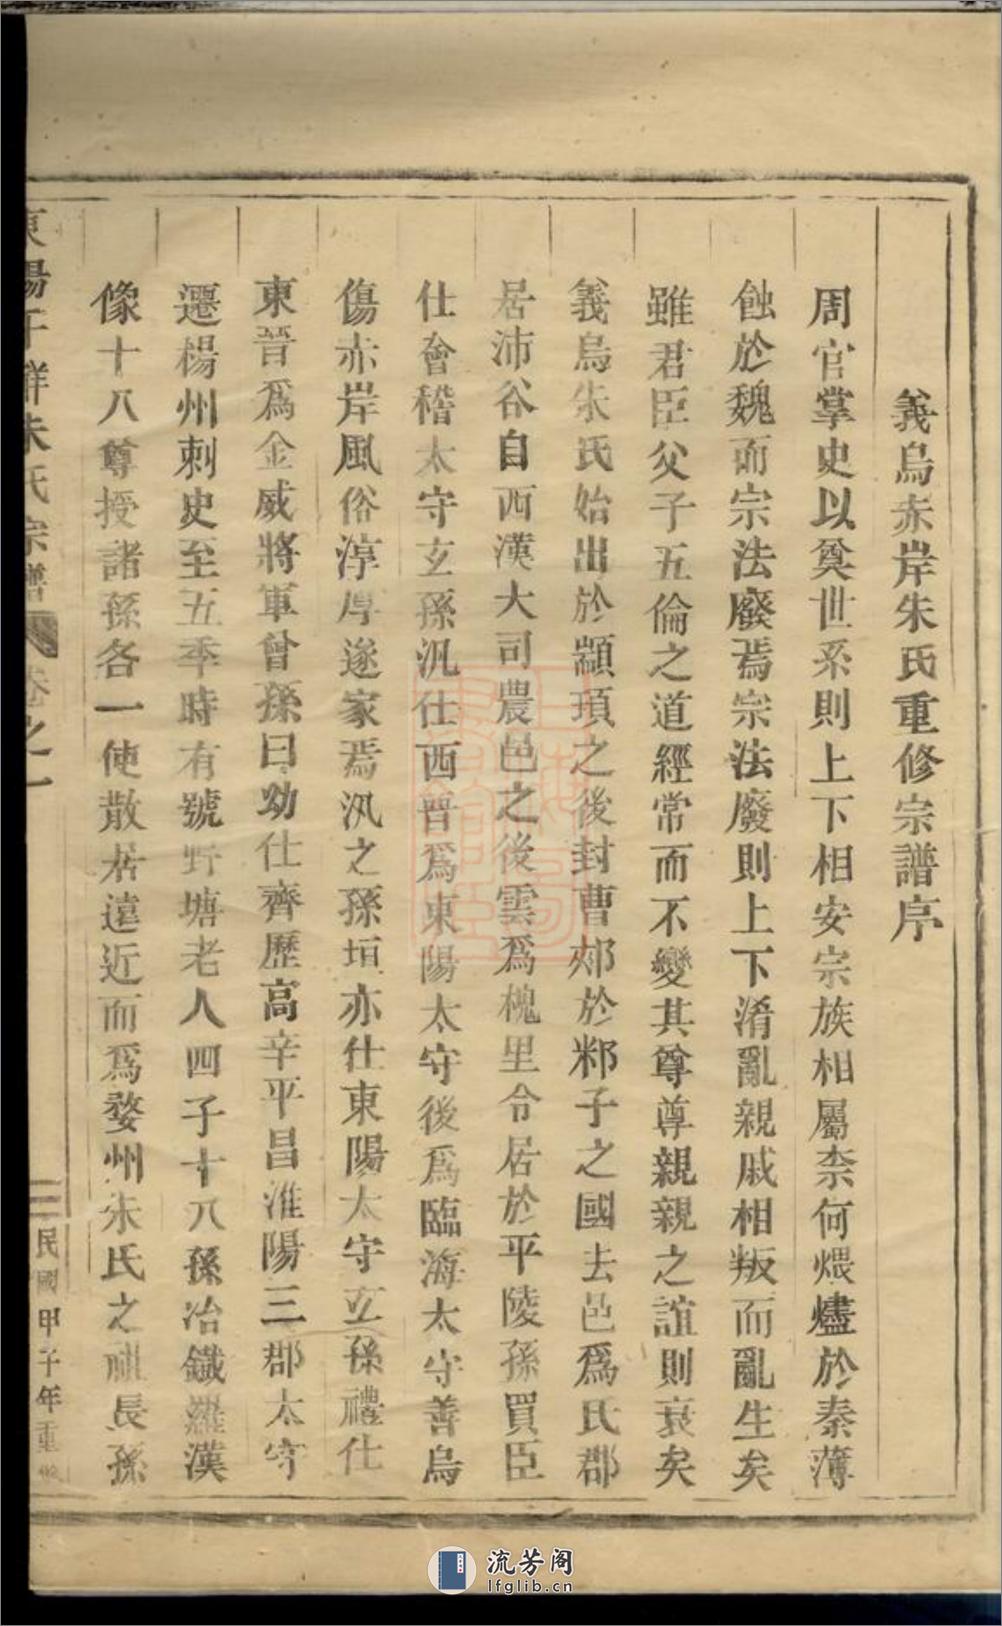 義烏赤岸朱氏重修宗譜序
周官掌史以奠世系則上下相安宗族相屬柰何煨燼於秦薄
蝕於魏而宗法廢焉宗法廢則上下淆亂親戚相叛而亂生矣
雖君臣父子五倫之道經常而不變其尊尊親親之誼則衰矣
義烏朱氏始出於顓頊之後封曹郟於邾子之國去邑爲氏郡
居沛谷自西漢大司農邑之後雲爲槐里令居於平陵孫買臣
仕會稽太守玄孫汎仕西晉爲東陽太守後爲臨海太守善烏
傷赤岸風俗淳厚遂家焉汎之孫垣亦仕東陽太守玄孫禮仕
東晉爲金威將軍曾孫曰幼仕齊歷高辛平昌淮陽三郡太守
遷楊州刺史至五季時有號野塘老人四子十八孫冶鐵羅漢
像十八尊授諸孫各一使散居遠近而爲婺州朱氏之祖長孫
東陽千祥朱氏宗譜 卷之一 二 民國甲子年重修
流芳阁
lfglib.cn